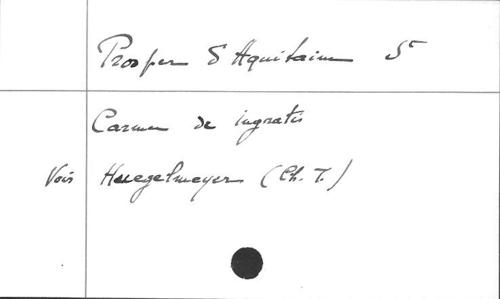 Prosper d'Aquitaine St
Carmen de ingratis
Voir Huegelmeyer (Ch. T.)